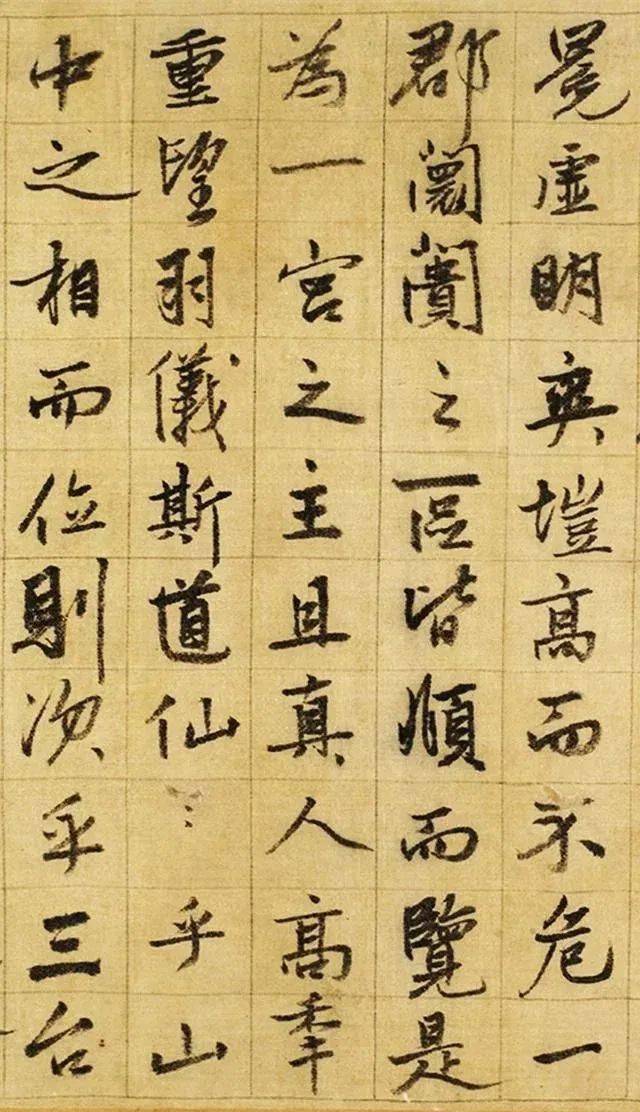 晃虚明爽塏高而不危一
郡闤闠之區皆順而覽是
為一宫之主且真人高秊
重望羽儀斯道仙〻乎山
中之相而位則次乎三台